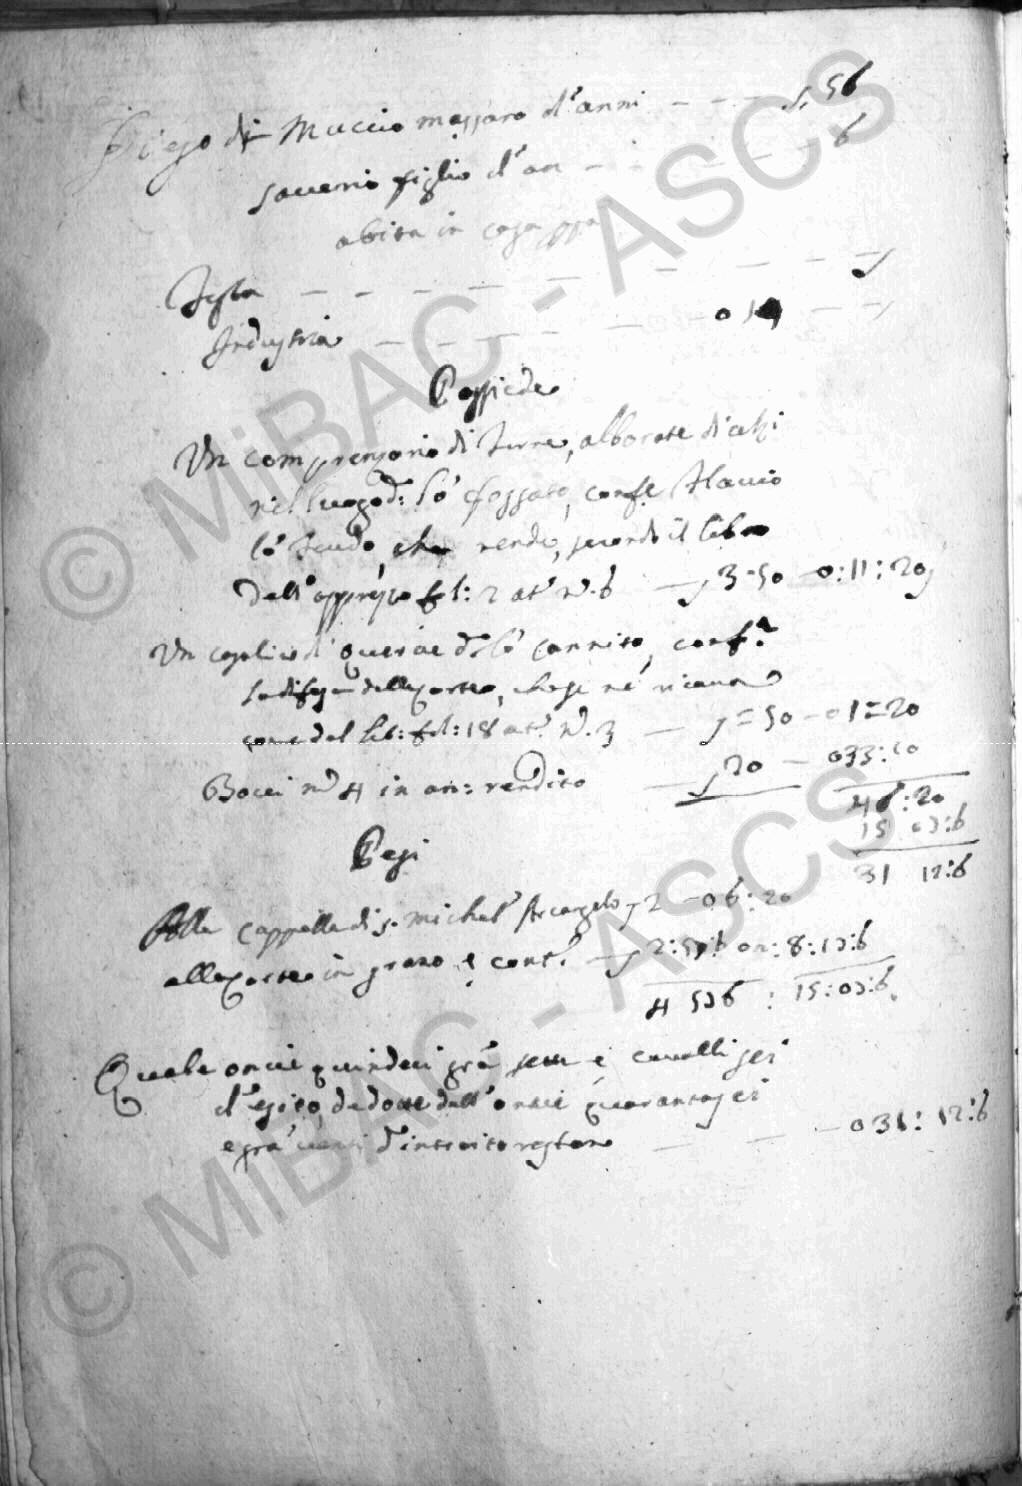 Diego di Muccio massaro d'anni - - - 56
Saverio figlio d'an - - - - - 6
abita in casa ppa
Testa - - - - - - - -
Industria - - - - - - 014 - -
Possiede
Un comprensorio di Terre, alborate di celzi
nel luogo d: lo fossato, conf. Flavio
lo Feudo, che rende, secondo il libro
dell'apprezo fol: 2 at. n. 6 — 3-50 -0:11:20
Un di querce d: lo Cannito, conf.
della Corte, che se ne ricava
come dal lib: fol: 18 at. n. 3 — =50 -01=20
Bovi n. 4 in an: rendito — 20 — 033:10
46:20
15 03:6
31 12:6
Pesi
Alla Cappella di S. Michel' Arcangelo 2 -06:20
alla Corte in grano e cont. — 2:5 :6 on: 8:13:6
4 5 6 : 15:03:6
Quale oncie quindeci grà e cavalli sei
d'esito, dedotte dall'oncie quarantasei
e grà venti d'introito restano — — — 031: 12:6
© MiBAC - ASCS
© MiBAC - ASCS